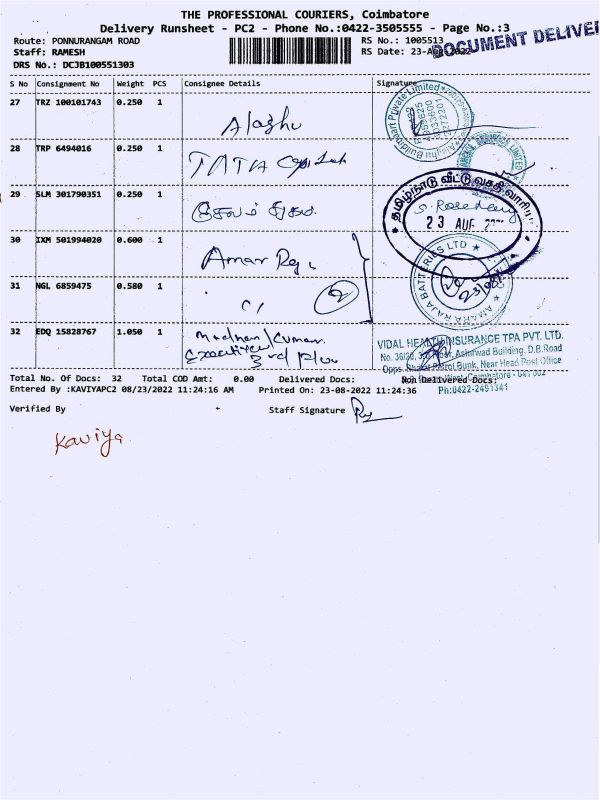 THE PROFESSIONAL COURIERS, Coimbatore
Delivery Runsheet - PC2 - Phone No.:0422-3505555 - Page No.:3
Route: PONNURANGAM ROAD
RS No.: 1005513
Staff: RAMESH
RS Date: 23-Aug-2022
DOCUMENT DELIVE
DRS No.: DCJB100551303
S No Consignment No Weight PCS Consignee Details Signature
27 TRZ 100101743 0.250 1
Alaghu
28 TRP 6494016 0.250 1
TATA
29 SLM 301790351 0.250 1
தமிழ்நாடு வீட்டு வசதி வாரிய
23 AUG
30 IXM 501994020 0.600 1
Amar Raja
AMARA RAJA BATTERIES LTD
31 NGL 6859475 0.580 1
2
32 EDQ 15828767 1.050 1
Madhan Kumar
Executive
3rd floor
VIDAL HEALTH INSURANCE TPA PVT. LTD.
No. 36/20, 3rd Floor, Aishwad Building, D.B.Road
Opps. Bharat Petrol Bunk, Near Head Post Office
Coimbatore - 641 002
Ph:0422-2491341
Total No. Of Docs: 32 Total COD Amt: 0.00 Delivered Docs: Non Delivered Docs:
Entered By :KAVIYAPC2 08/23/2022 11:24:16 AM Printed On: 23-08-2022 11:24:36
Verified By Staff Signature
Kaviya